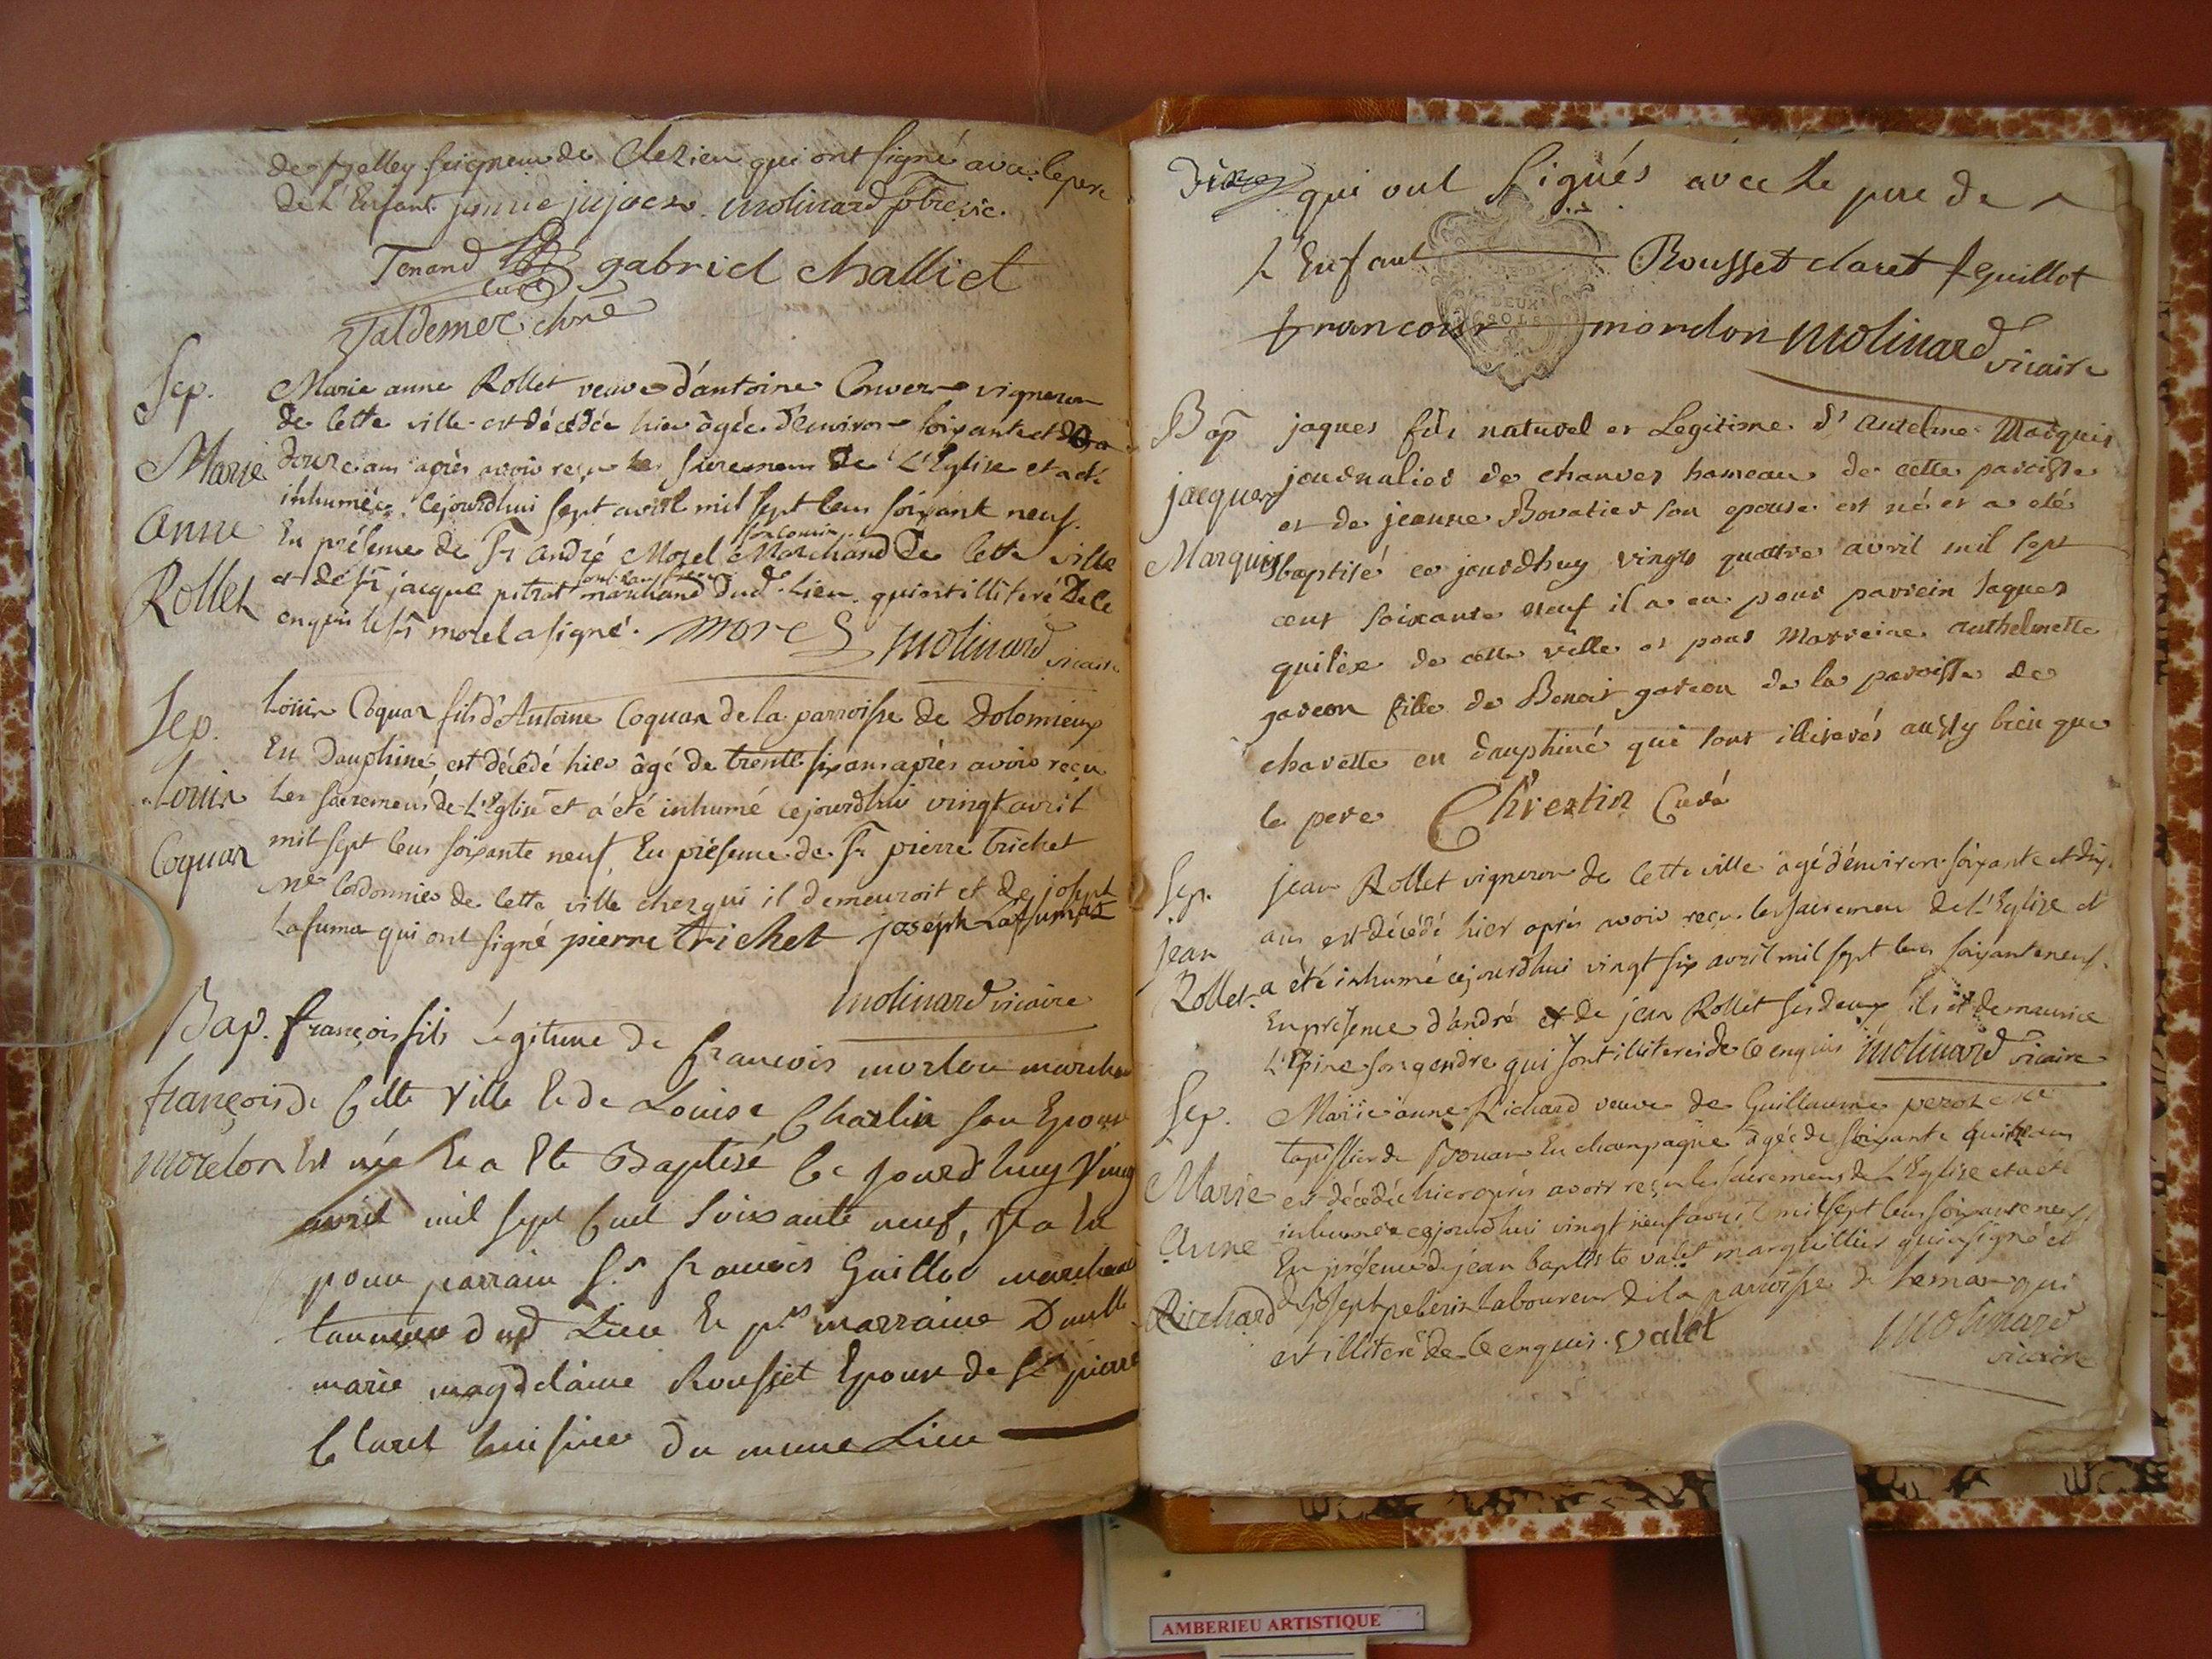 de seigneur de Clezieu qui ont signé avec le pere
de L'Enfant. molinard ptre vic.
Tenand curé gabriel challiet
Valdemer chne
Sep. Marie anne Rollet veuve d'antoine Convers vigneron
de Cette ville est décédée hier âgée d'environ soixante et
Marie douze ans après avoir reçu les sacremens de L'Eglise et a été
inhumée cejourdhui sept avril mil sept cens soixante neuf.
Anne En présence de Sr andré Morel son cousin Marchand de Cette ville
Rollet et de Sr jacque petrot marchand dud. Lieu qui est illiteré de ce
enquis le Sr morel a signé. morel molinard vicaire
Sep. Loüis Coquaz fils d'Antoine Coquaz de la parroisse de Dolomieux
En Dauphiné, est décédé hier âgé de trente six ans après avoir reçu
Loüis Les sacremens de L'Eglise et a été inhumé cejourdhui vingt avril
Coquaz mil sept cens soixante neuf, En présence de Sr pierre trichet
me Cordonnier de Cette ville chez qui il demeuroit et de joseph
Lafuma qui ont signé pierre trichet joseph Lafumas
molinard vicaire
Bap. françois fils Légitime de françois morlon marchand
françois de Cette Ville Et de Louise Charlin son Epouse
morelon Est née Et a Eté Baptisé Ce jourd'huy Vingt
avril mil sept Cent soixante neuf, Il a Eu
pour parrain Sr françois Guillot marchand
tanneur dud Lieu Et pr marraine Dmlle
marie magdelaine Rousset Epouse de Sr pierre
Claret huissier du meme Lieu
qui ont signés avec le pere de
L'Enfant Rousset claret f guillot
francour mordon molinard vicaire
DEUX
SOLS
Bap jaques fils naturel et Legitime d'antelme Marquis
jacques journalier de chanves hameau de cette paroisse
et de jeanne Bovatier son epouse est né et a eté
Marquis baptisé ce jourdhuy vingt quattre avril mil sept
cent soixante neuf il a eu pour parrein Jaques
de cette ville et pour Marreine anthelmette
gareon fille de Benoit gareon de la paroisse de
charette en dauphiné qui sont illiterés aussy bien que
le pere Chrestin Curé
Sep. jean Rollet vigneron de Cette ville agé d'environ soixante et dix
jean ans est décédé hier après avoir reçu les sacremens de L'Eglise et
Rollet a été inhumé cejourdhui vingt six avril mil sept cens soixante neuf.
En présence d'andré et de jean Rollet ses deux fils et de maurice
L'Epine son gendre qui sont illiterés de ce enquis molinard vicaire
Sep. Marie anne Richard veuve de Guillaume perot
tapissier de En champagne agée de soixante quinze ans
Marie est décédée hier après avoir reçu les sacremens de L'Eglise et a été
Anne inhumée cejourdhui vingt neuf avril mil sept cens soixante neuf,
En présence de jean baptiste valet marguillier qui a signé et
Richard de joseph laboureur de la parroisse de qui
est illiteré de ce enquis. valet molinard
vicaire
AMBERIEU ARTISTIQUE